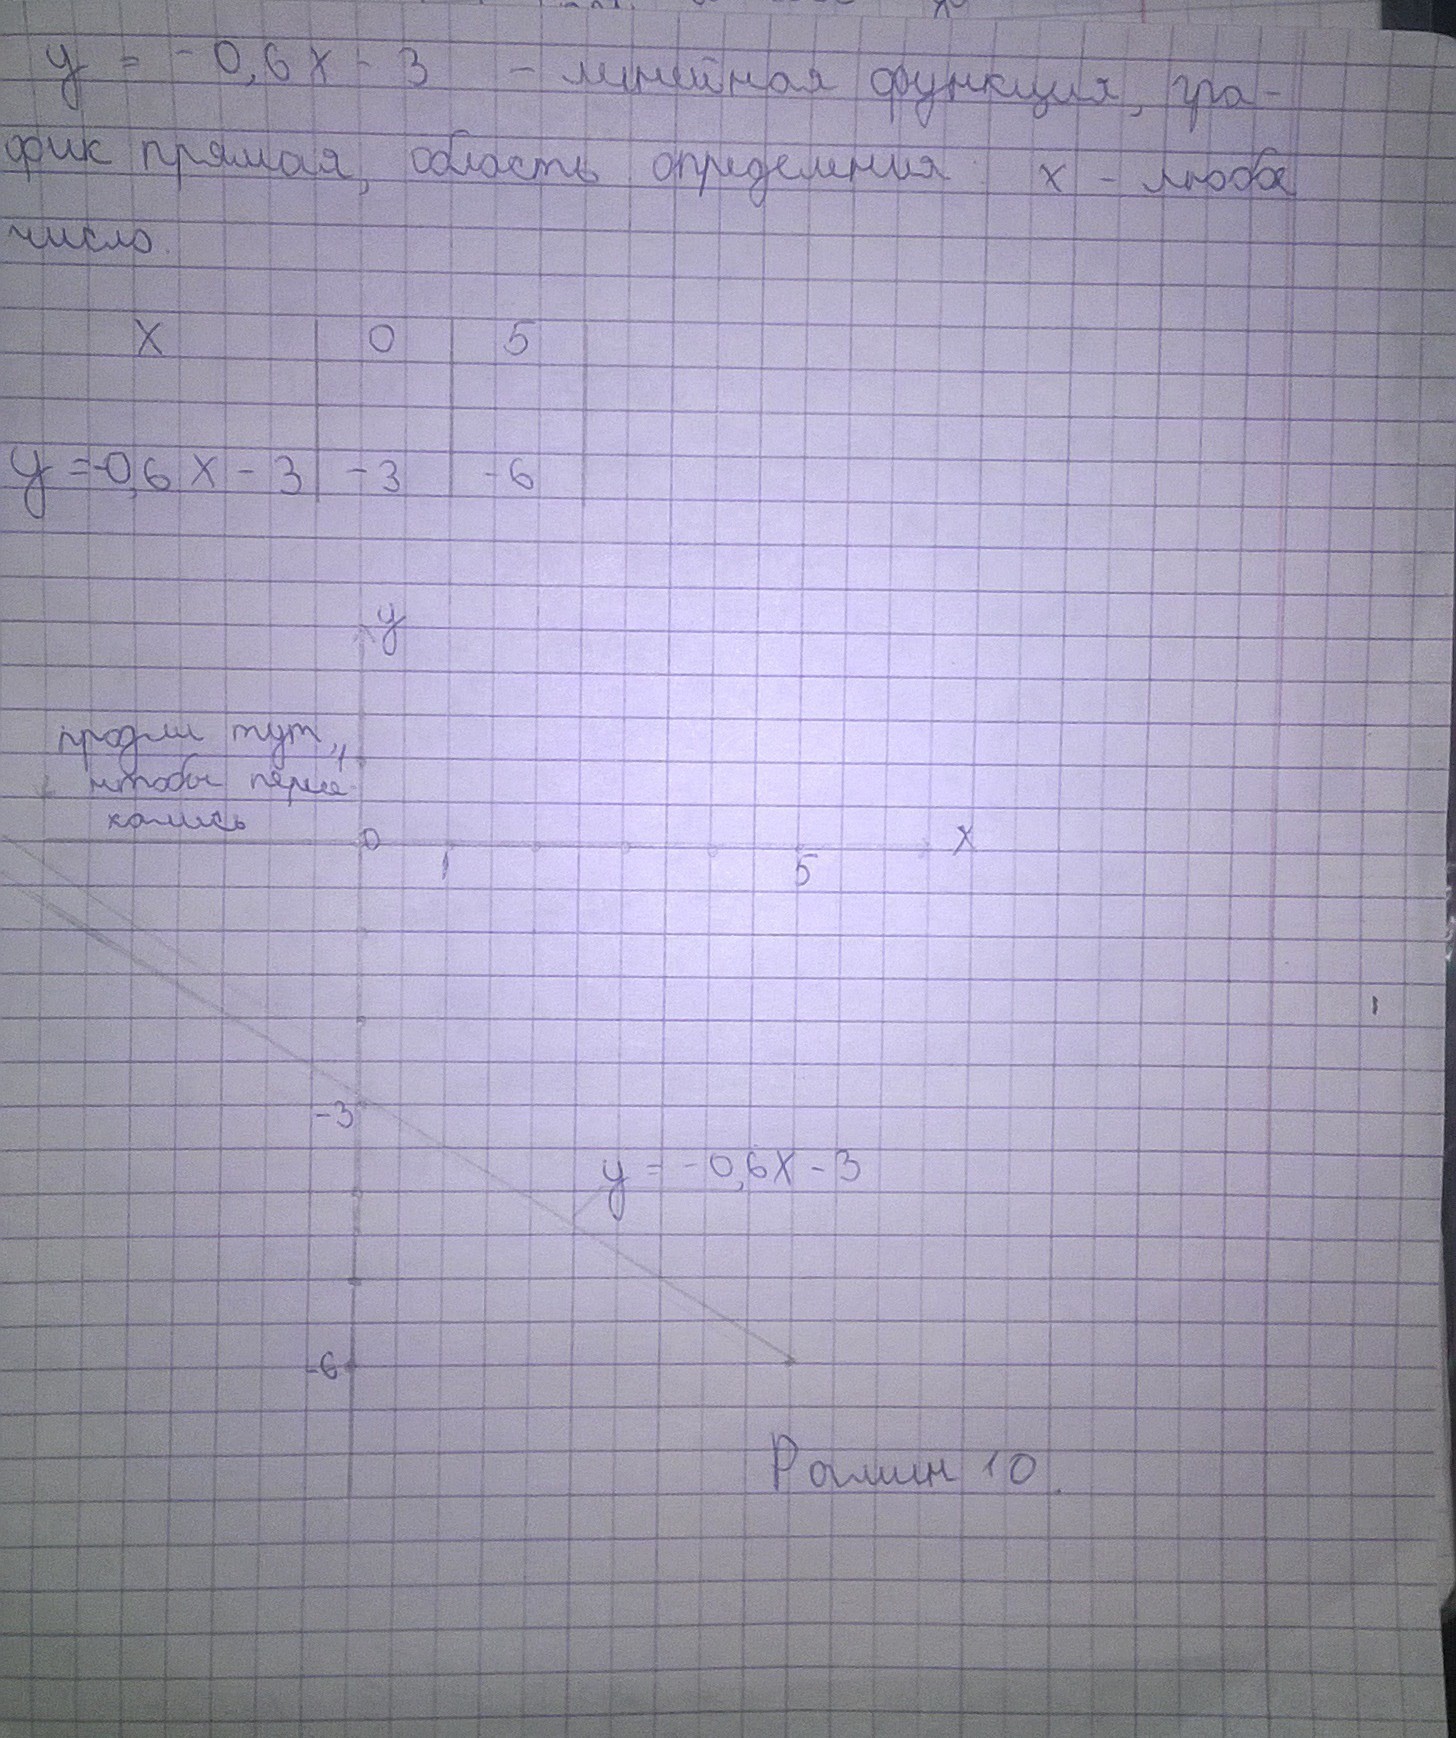 y = -0,6x - 3 - линейная функция, гра-
фик прямая, область определения x - любое
число.
x 0 5
y = -0,6x - 3 -3 -6
y
продли тут,
чтобы пересе
кались
0 x
1 5
-3
y = -0,6x - 3
-6
Рамин 10.